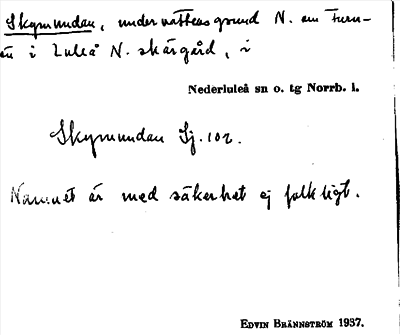 Skymundan, undervattensgrund N. om Furu-
ön i Luleå N. skärgård, i
Nederluleå sn o. tg Norrb. l.
Skymundan Sj. 102.
Namnet är med säkerhet ej folkligt.
EDVIN BRÄNNSTRÖM 1937.